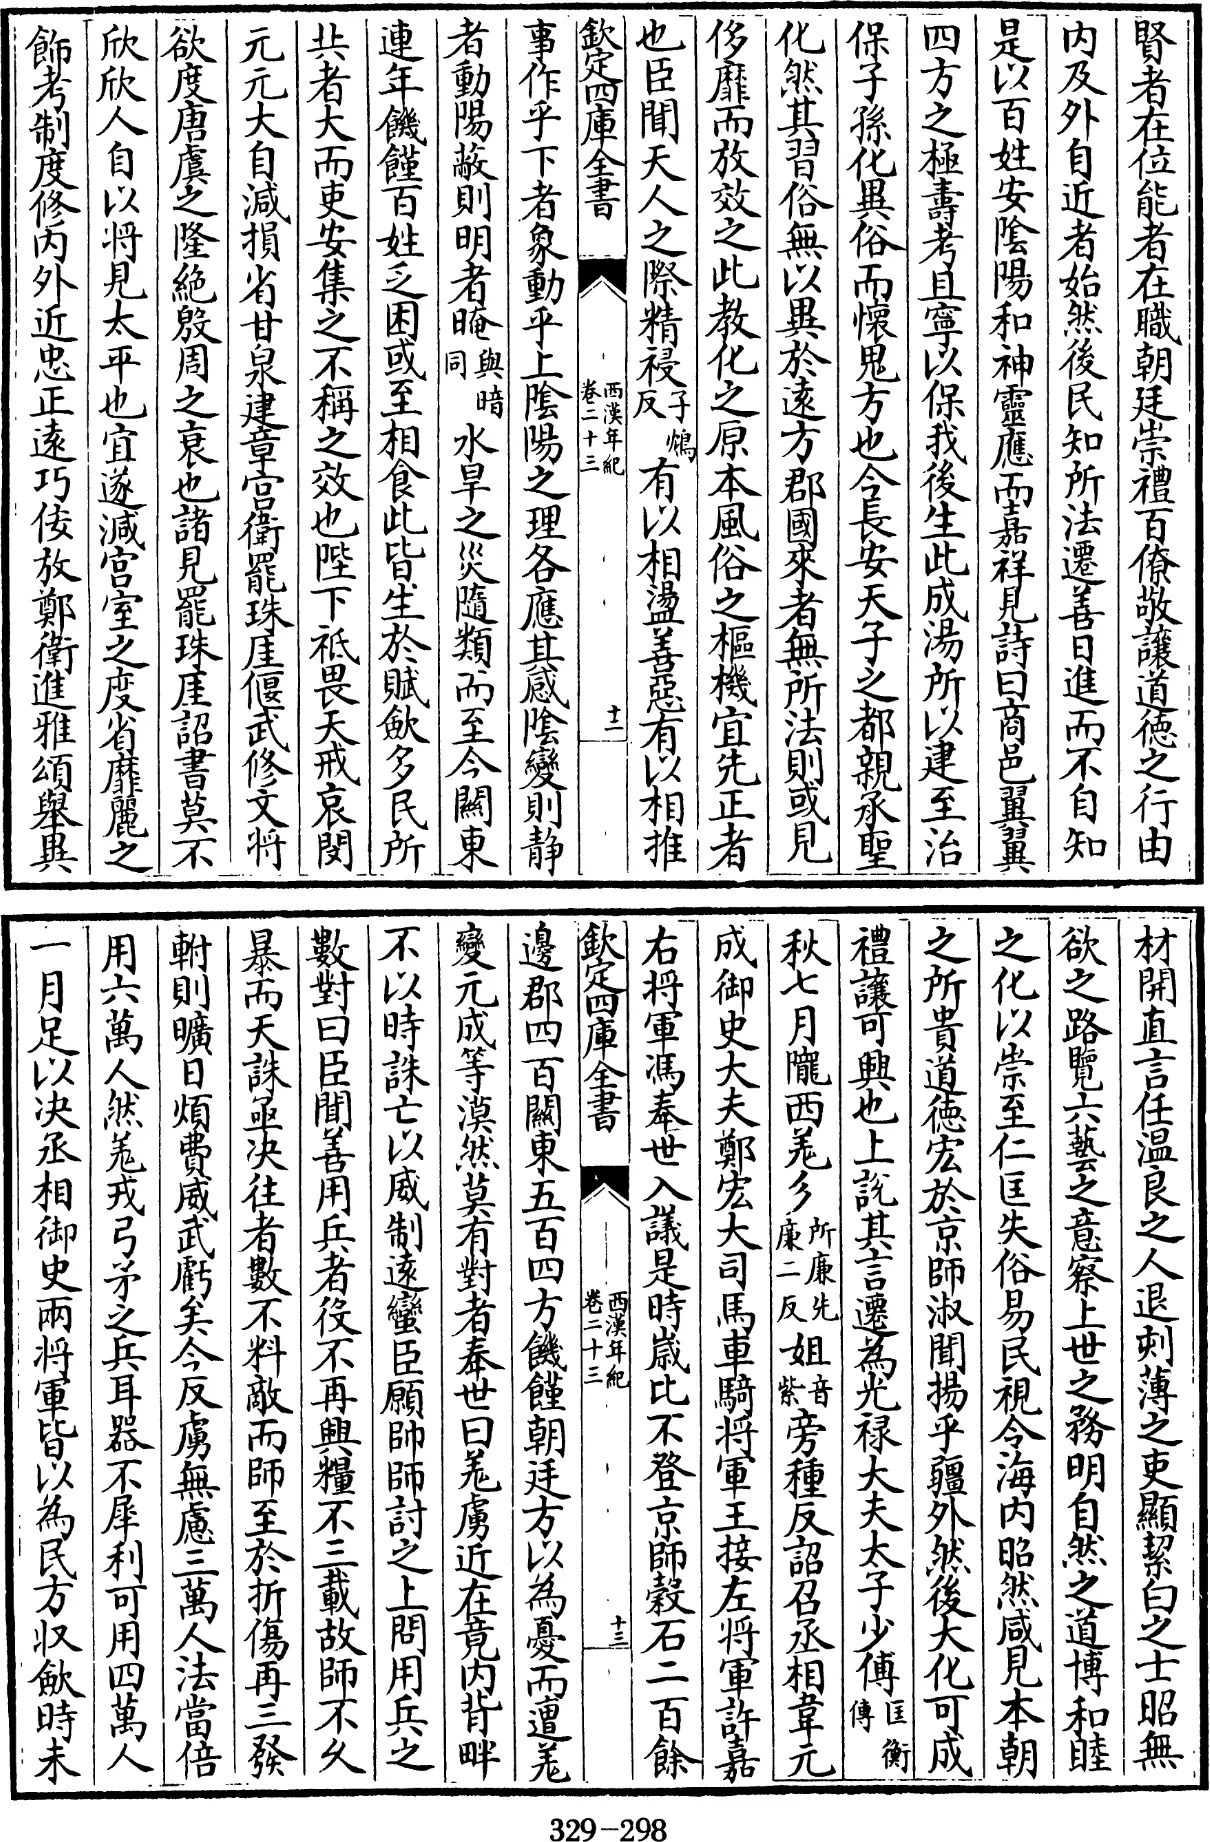 賢者在位能者在職朝廷崇禮百僚敬讓道徳之行由
内及外自近者始然後民知所法遷善日進而不自知
是以百姓安隂陽和神靈應而嘉祥見詩曰商邑翼翼
四方之極壽考且寧以保我後生此成湯所以建至治
保子孫化異俗而懷鬼方也今長安天子之都親承聖
化然其習俗無以異於逺方郡國來者無所法則或見
侈靡而放效之此教化之原本風俗之樞機宜先正者
也臣聞天人之際精祲子鴆反有以相盪善惡有以相推
欽定四庫全書
西漢年紀
卷二十三
十二
事作乎下者象動乎上隂陽之理各應其感隂變則静
者動陽蔽則明者晻與暗同水旱之災隨類而至今關東
連年饑饉百姓乏困或至相食此皆生於賦歛多民所
共者大而吏安集之不稱之效也陛下祗畏天戒哀閔
元元大自減損省甘泉建章宫衛罷珠厓偃武修文将
欲度唐虞之隆絶殷周之衰也諸見罷珠厓詔書莫不
欣欣人自以将見太平也宜遂減宫室之度省靡麗之
飾考制度修内外近忠正逺巧佞放鄭衛進雅頌舉異
材開直言任温良之人退刻薄之吏顯絜白之士昭無
欲之路覽六藝之意察上世之務明自然之道博和睦
之化以崇至仁匡失俗易民視令海内昭然咸見本朝
之所貴道徳宏於京師淑聞揚乎疆外然後大化可成
禮讓可興也上説其言遷為光禄大夫太子少傅匡衡傳
秋七月隴西羌彡所廉先廉二反姐音紫旁種反詔召丞相韋元
成御史大夫鄭宏大司馬車騎将軍王接左将軍許嘉
右将軍馮奉世入議是時嵗比不登京師榖石二百餘
欽定四庫全書
西漢年紀
卷二十三
十三
邊郡四百關東五百四方饑饉朝廷方以為憂而遭羌
變元成等漠然莫有對者奉世曰羌虜近在竟内背畔
不以時誅亡以威制逺蠻臣願帥師討之上問用兵之
數對曰臣聞善用兵者役不再興糧不三載故師不久
暴而天誅亟决往者數不料敵而師至於折傷再三發
軵則曠日煩費威武虧矣今反虜無慮三萬人法當倍
用六萬人然羌戎弓矛之兵耳器不犀利可用四萬人
一月足以决丞相御史兩将軍皆以為民方収歛時未
329-298